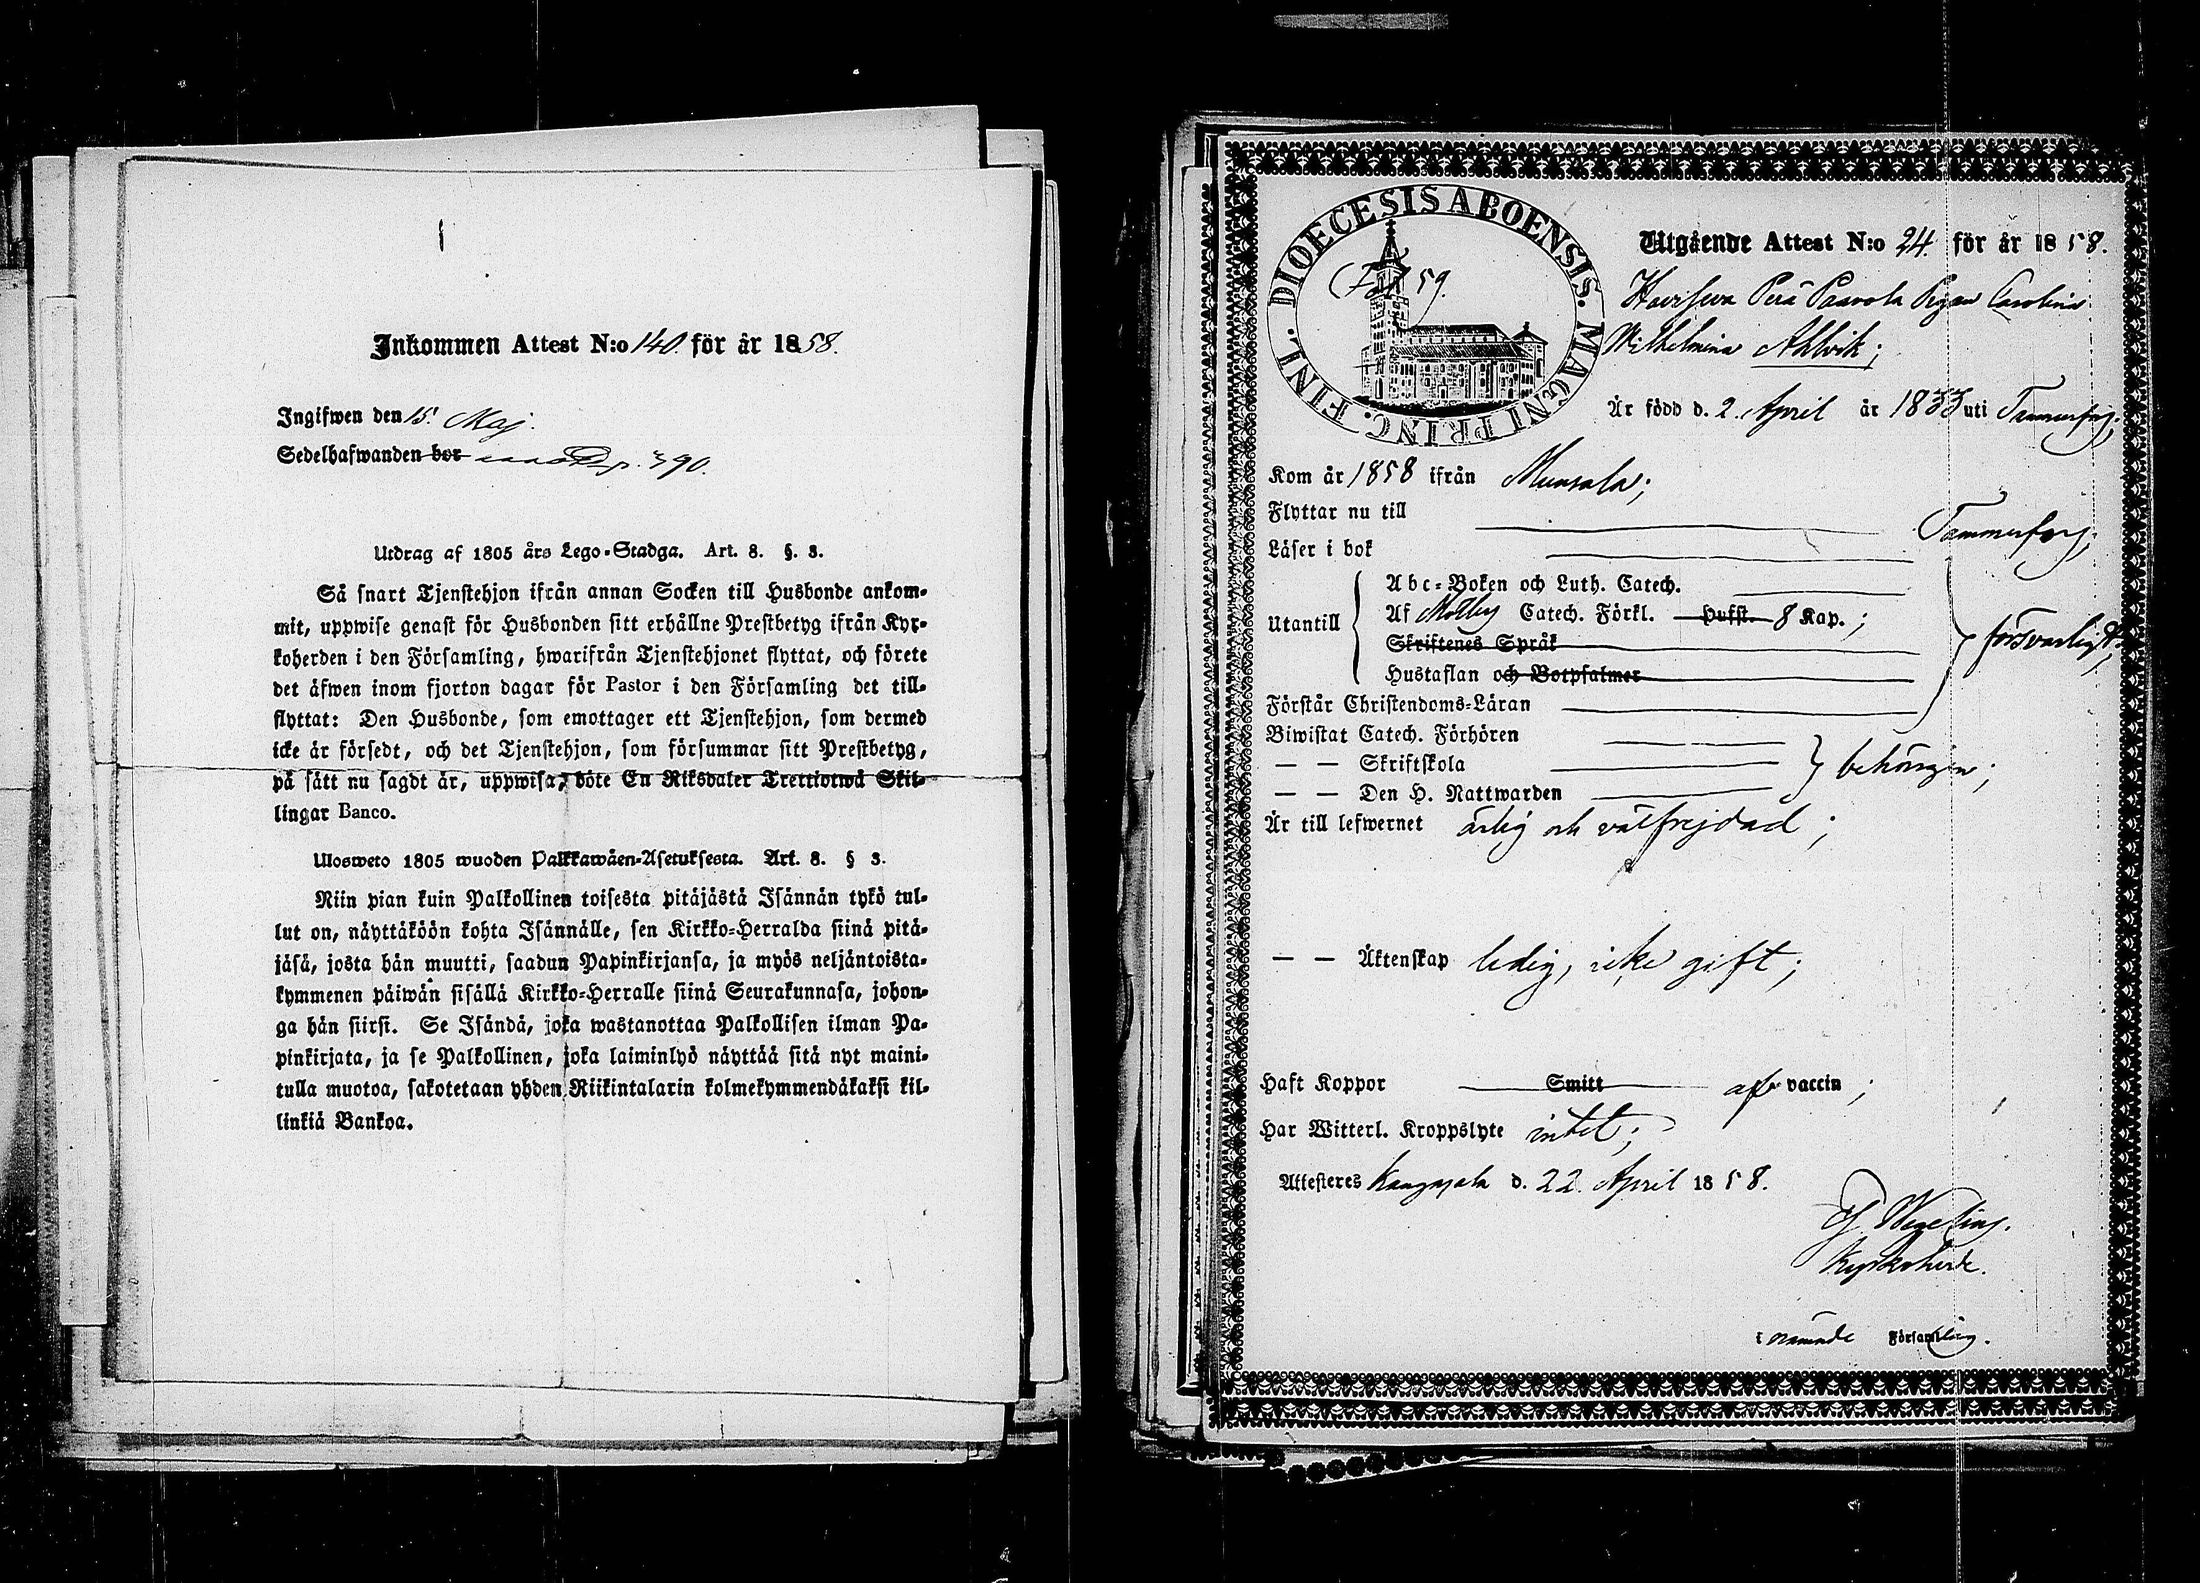 Inkommen Attest N:o 140. för år 1858.
Ingifwen den 15. Maj.
Sedelhafwanden bor 390.
Utdrag af 1805 års Lego-Stadga. Art. 8. §. 3.
Så snart Tjenstehjon ifrån annan Socken till Husbonde ankom-
mit, uppwise genast för Husbonden sitt erhållne Prestbetyg ifrån Kyr-
koherden i den Församling, hwarifrån Tjenstehjonet flyttat, och förete
det äfwen inom fjorton dagar för Pastor i den Församling det till-
flyttat: Den Husbonde, som emottager ett Tjenstehjon, som dermed
icke är försedt, och det Tjenstehjon, som försummar sitt Prestbetyg,
på sätt nu sagdt är, uppwisa, böte En Riksdaler Trettiotwå Skil-
lingar Banco.
Ulosweto 1805 wuoden Palkkawäen-Asetuksesta. Art. 8. § 3.
Niin pian kuin Palkollinen toisesta pitäjästä Isännän tykö tul-
lut on, näyttäköön kohta Isännälle, sen Kirkko-Herralda siinä pitä-
jäsä, josta hän muutti, saadun Papinkirjansa, ja myös neljäntoista-
kymmenen päiwän sisällä Kirkko-Herralle siinä Seurakunnasa, johon-
ga hän siirsi. Se Isändä, joka wastanottaa Palkollisen ilman Pa-
pinkirjata, ja se Palkollinen, joka laiminlyö näyttää sitä nyt maini-
tulla muotoa, sakotetaan yhden Riikintalarin kolmekymmendäkaksi kil-
linkiä Bankoa.
DIOECESIS ABOENSIS. MAGNI PRINC. FINL.
Fol 59.
Utgående Attest N:o 24. för år 1858.
Haviseva Perä Paavola Pigan Carolina
Wilhelmina Ahlvik;
Är född d. 2. April år 1833 uti Tammerfors;
Kom år 1858 ifrån Munsala;
Flyttar nu till Tammerfors;
Läser i bok
Abc-Boken och Luth. Catech.
Utantill Af Catech. Förkl. Hufst. 8 Kap.; försvarligt;
Skriftenes Språk
Hustaflan och Botpsalmer
Förstår Christendoms-Läran
Biwistat Catech. Förhören
— — Skriftskola behörigen;
— — Den H. Nattwarden
Är till lefwernet ärlig och välfrejdad;
— — Äktenskap ledig, icke gift;
Haft Koppor Smitt af vaccin;
Har Witterl. Kroppslyte intet;
Attesteres Kangasala d. 22. April 1858.
Wegelius.
Kyrkoherde.
i nämnde Församling.